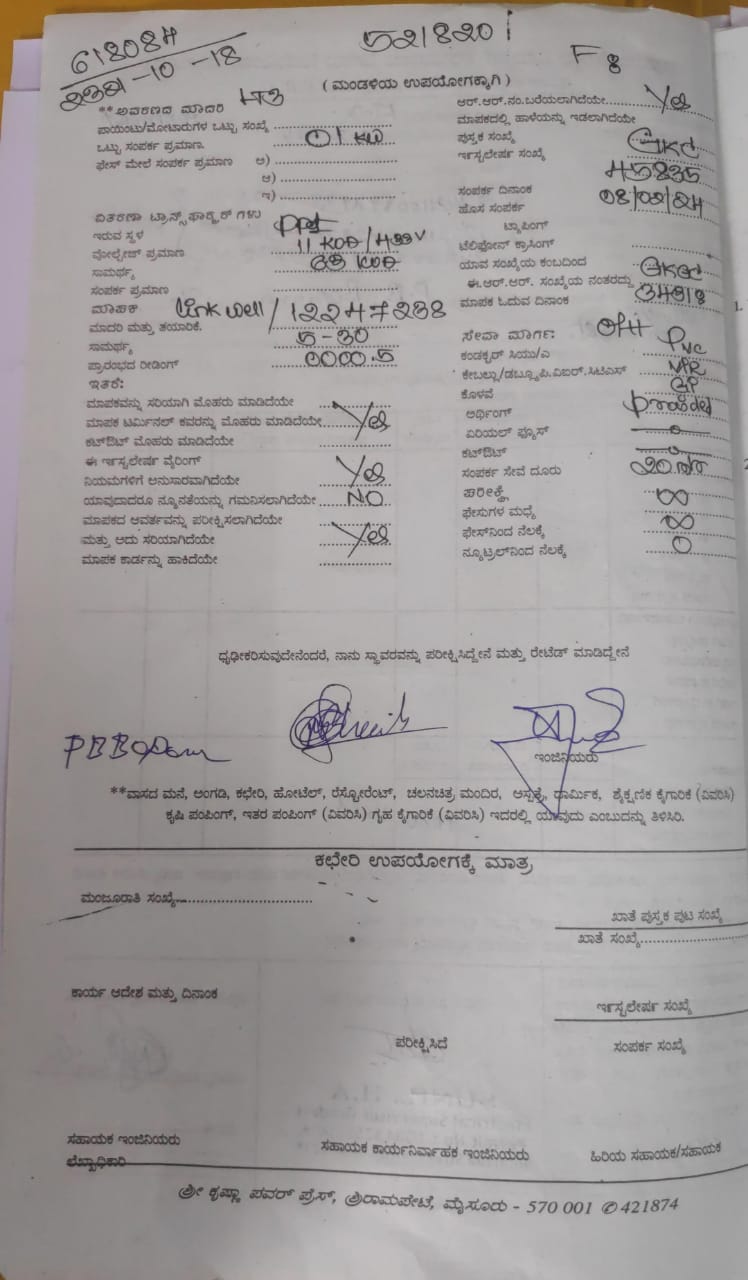 618084
521820
F 8
-10 -18
( ಮಂಡಳಿಯ ಉಪಯೋಗಕ್ಕಾಗಿ )
**ಅವರಣದ ಮಾದರಿ
ಪಾಯಿಂಟು/ಮೋಟಾರುಗಳ ಒಟ್ಟು ಸಂಖ್ಯೆ
ಒಟ್ಟು ಸಂಪರ್ಕ ಪ್ರಮಾಣ. 01 KW
ಫೇಸ್ ಮೇಲೆ ಸಂಪರ್ಕ ಪ್ರಮಾಣ ಅ)
ಆ)
ಇ)
ವಿತರಣಾ ಟ್ರಾನ್ಸ್‌ಫಾರ್ಮರ್ ಗಳು
ಇರುವ ಸ್ಥಳ
ವೋಲ್ಟೇಜ್ ಪ್ರಮಾಣ
ಸಾಮರ್ಥ್ಯ 63
ಸಂಪರ್ಕ ಪ್ರಮಾಣ
ಮಾಪಕ Link well / 12247238
ಮಾದರಿ ಮತ್ತು ತಯಾರಿಕೆ.
ಸಾಮರ್ಥ್ಯ 5-30
ಪ್ರಾರಂಭದ ರೀಡಿಂಗ್ 0000.5
ಇತರೆ:
ಮಾಪಕವನ್ನು ಸರಿಯಾಗಿ ಮೊಹರು ಮಾಡಿದೆಯೇ
ಮಾಪಕ ಟರ್ಮಿನಲ್ ಕವರನ್ನು ಮೊಹರು ಮಾಡಿದೆಯೇ Yes
ಕಟ್‌ಔಟ್ ಮೊಹರು ಮಾಡಿದೆಯೇ
ಈ ಇನ್ಸ್ಟಲೇಷನ್ ವೈರಿಂಗ್
ನಿಯಮಗಳಿಗೆ ಅನುಸಾರವಾಗಿದೆಯೇ Yes
ಯಾವುದಾದರೂ ನ್ಯೂನತೆಯನ್ನು ಗಮನಿಸಲಾಗಿದೆಯೇ NO
ಮಾಪಕದ ಆವರ್ತವನ್ನು ಪರೀಕ್ಷಿಸಲಾಗಿದೆಯೇ
ಮತ್ತು ಅದು ಸರಿಯಾಗಿದೆಯೇ Yes
ಮಾಪಕ ಕಾರ್ಡನ್ನು ಹಾಕಿದೆಯೇ
ಆರ್.ಆರ್.ನಂ.ಬರೆಯಲಾಗಿದೆಯೇ Yes
ಮಾಪಕದಲ್ಲಿ ಹಾಳೆಯನ್ನು ಇಡಲಾಗಿದೆಯೇ
ಪುಸ್ತಕ ಸಂಖ್ಯೆ
ಇನ್ಸ್ಟಲೇಷನ್ ಸಂಖ್ಯೆ 45835
ಸಂಪರ್ಕ ದಿನಾಂಕ 08/02/24
ಹೊಸ ಸಂಪರ್ಕ
ಟ್ಯಾಪಿಂಗ್
ಟೆಲಿಫೋನ್ ಕ್ರಾಸಿಂಗ್
ಯಾವ ಸಂಖ್ಯೆಯ ಕಂಬದಿಂದ
ಈ.ಆರ್.ಆರ್. ಸಂಖ್ಯೆಯ ನಂತರದ್ದು
ಮಾಪಕ ಓದುವ ದಿನಾಂಕ
ಸೇವಾ ಮಾರ್ಗ: OH
ಕಂಡಕ್ಟರ್ ಸಿಯು/ಎ PVC
ಕೇಬಲ್ಲು/ಡಬ್ಲ್ಯೂ.ಪಿ.ವಿಐರ್.ಸಿಟಿಎಸ್
ಕೊಳವೆ GP
ಅರ್ಥಿಂಗ್ Provided
ಏರಿಯಲ್ ಫ್ಯೂಸ್
ಕಟ್‌ಔಟ್
ಸಂಪರ್ಕ ಸೇವೆ ದೂರು
ಪರೀಕ್ಷೆ
ಫೇಸುಗಳ ಮಧ್ಯೆ ∞
ಫೇಸ್‌ನಿಂದ ನೆಲಕ್ಕೆ ∞
ನ್ಯೂಟ್ರಲ್‌ನಿಂದ ನೆಲಕ್ಕೆ 0
ಧೃಢೀಕರಿಸುವುದೇನೆಂದರೆ, ನಾನು ಸ್ಥಾವರವನ್ನು ಪರೀಕ್ಷಿಸಿದ್ದೇನೆ ಮತ್ತು ರೇಟೆಡ್ ಮಾಡಿದ್ದೇನೆ
ಇಂಜಿನಿಯರು
**ವಾಸದ ಮನೆ, ಅಂಗಡಿ, ಕಛೇರಿ, ಹೋಟೆಲ್, ರೆಸ್ಟೋರೆಂಟ್, ಚಲನಚಿತ್ರ ಮಂದಿರ, ಆಸ್ಪತ್ರೆ, ಧಾರ್ಮಿಕ, ಶೈಕ್ಷಣಿಕ ಕೈಗಾರಿಕೆ (ವಿವರಿಸಿ)
ಕೃಷಿ ಪಂಪಿಂಗ್, ಇತರ ಪಂಪಿಂಗ್ (ವಿವರಿಸಿ) ಗೃಹ ಕೈಗಾರಿಕೆ (ವಿವರಿಸಿ) ಇದರಲ್ಲಿ ಯಾವುದು ಎಂಬುದನ್ನು ತಿಳಿಸಿರಿ.
ಕಛೇರಿ ಉಪಯೋಗಕ್ಕೆ ಮಾತ್ರ
ಮಂಜೂರಾತಿ ಸಂಖ್ಯೆ
ಖಾತೆ ಪುಸ್ತಕ ಪುಟ ಸಂಖ್ಯೆ
ಖಾತೆ ಸಂಖ್ಯೆ
ಕಾರ್ಯ ಆದೇಶ ಮತ್ತು ದಿನಾಂಕ
ಇನ್ಸ್ಟಲೇಷನ್ ಸಂಖ್ಯೆ
ಪರೀಕ್ಷಿಸಿದೆ
ಸಂಪರ್ಕ ಸಂಖ್ಯೆ
ಸಹಾಯಕ ಇಂಜಿನಿಯರು
ಲೆಖ್ಖಾಧಿಕಾರಿ
ಸಹಾಯಕ ಕಾರ್ಯನಿರ್ವಾಹಕ ಇಂಜಿನಿಯರು
ಹಿರಿಯ ಸಹಾಯಕ/ಸಹಾಯಕ
ಶ್ರೀ ಕೃಷ್ಣಾ ಪವರ್ ಪ್ರೆಸ್, ಶ್ರೀರಾಮಪೇಟೆ, ಮೈಸೂರು - 570 001 ✆ 421874